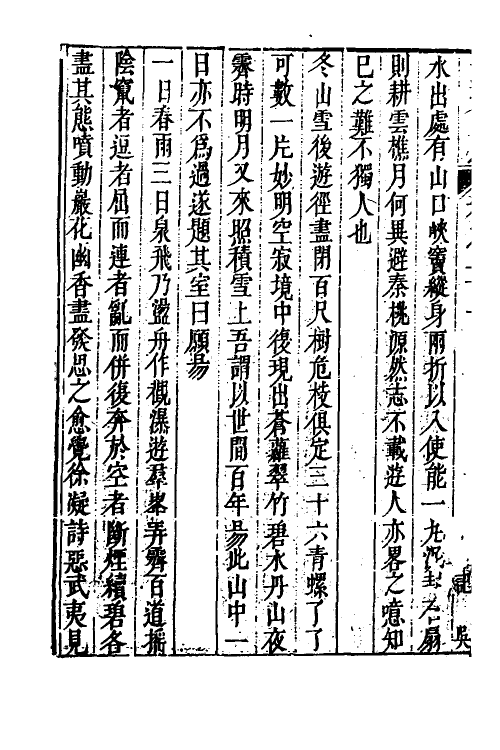 水出處有山口峽竇縱身兩折以入使能一丸泥封右扇
則耕雲樵月何異避秦桃源然志不載遊人亦畧之噫知
已之難不獨人也
冬山雪後遊徑盡閉百尺樹危枝俱定三十六青螺了了
可數一片妙明空寂境中復現出蒼蘿翠竹碧水丹山夜
霽時明月又來照積雪上吾謂以世間百年易此山中一
日亦不爲過遂題其室曰願易
一日春雨三日泉飛乃盪舟作觀瀑遊羣峯弄霽百道搖
陰竄者逗者屈而連者亂而併復奔於空者斷煙續碧各
盡其態噴動巖花幽香盡發思之愈覺徐凝詩惡武夷見